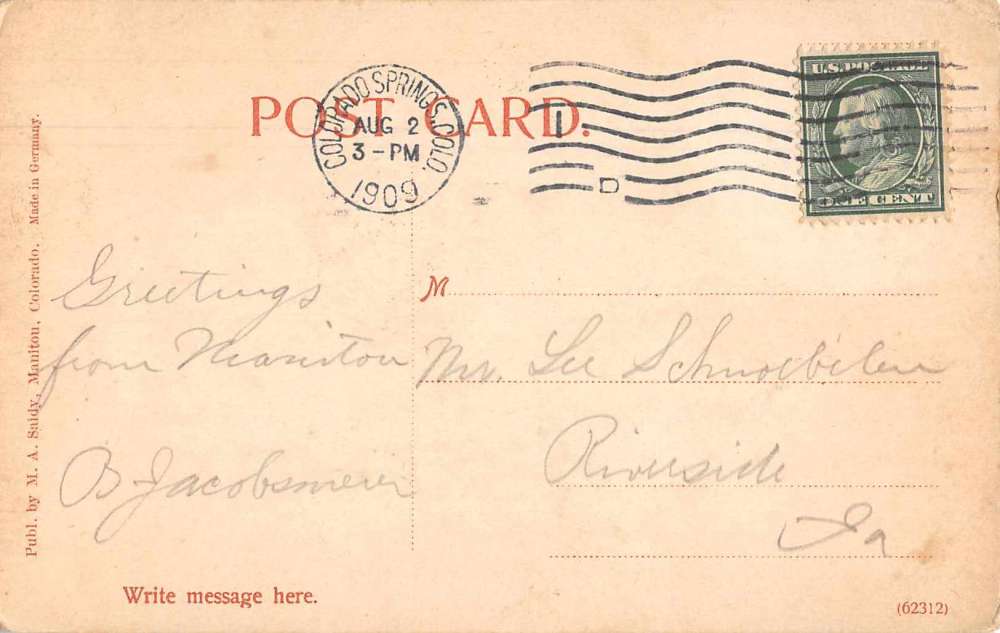 POST CARD.
COLORADO SPRINGS, COLO.
AUG 2
3-PM
1909
D
U.S. POSTAGE
ONE CENT
Greetings
from Manitou
B Jacobsmeier
M
Mr. Lee Schnoebelen
Riverside
Ia
Publ. by M. A. Saidy, Manitou, Colorado. Made in Germany.
Write message here.
(62312)